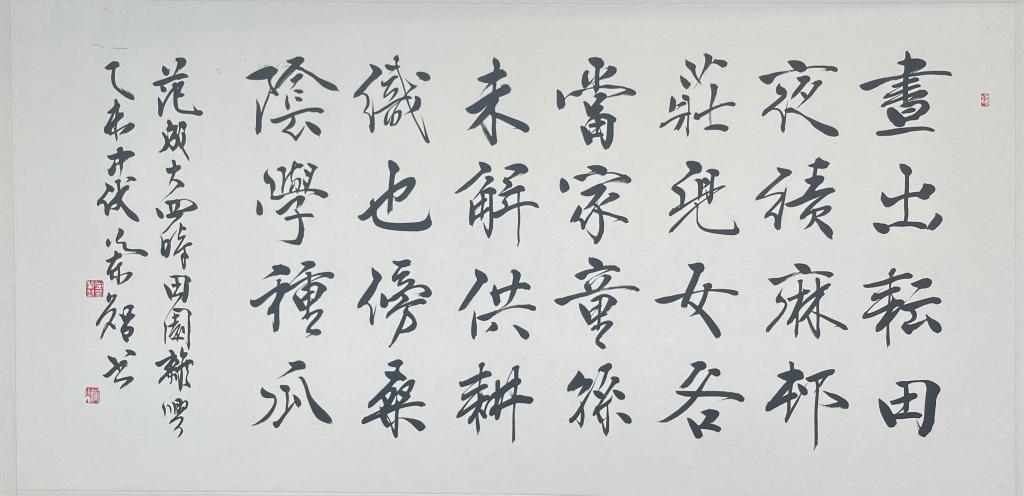 晝出耘田
夜績麻邨
莊兒女各
當家童孫
未解供耕
織也傍桑
陰學種瓜
范成大四時田園雜興
乙未中伏智书